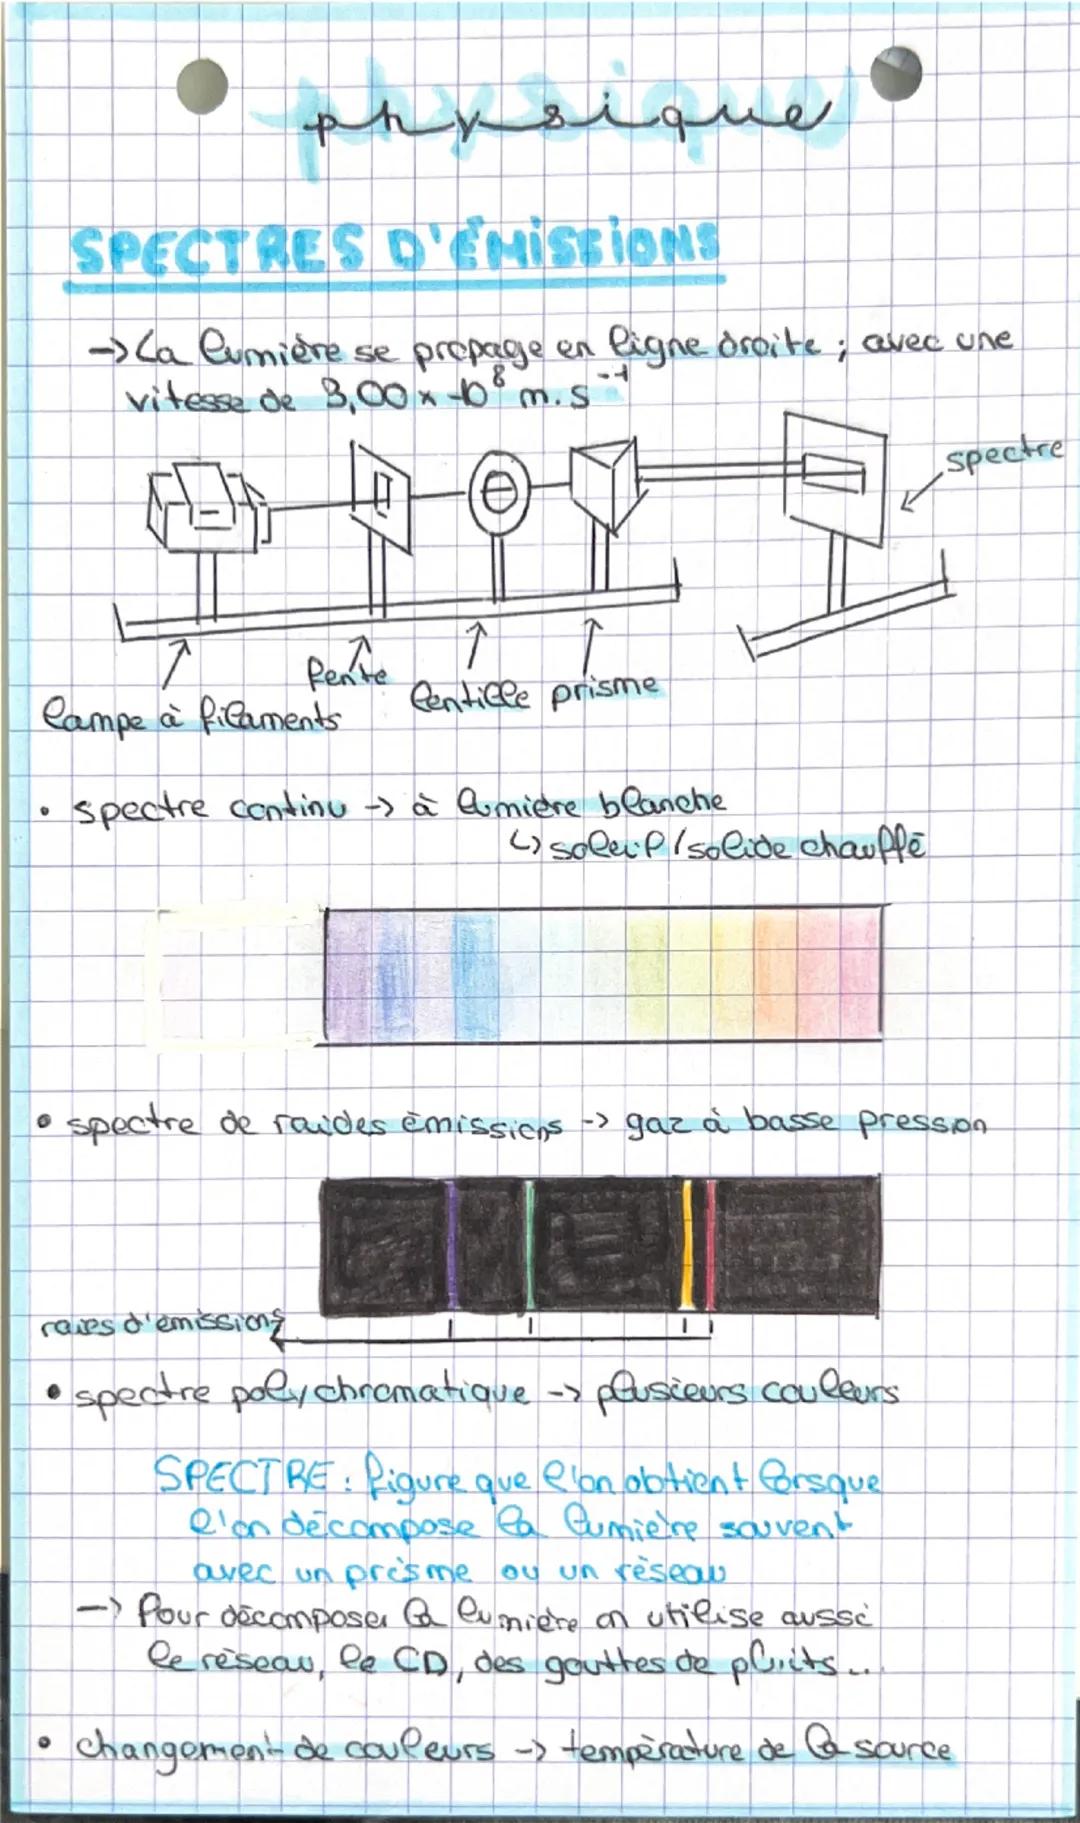 physique
SPECTRES D'ÉMISSIONS
-> La lumière se propage en ligne droite ; avec une
vitesse de 3,00 x 10⁸ m.s⁻¹
spectre
fente
lentille prisme
lampe à filaments
• spectre continu -> à lumière blanche
↳ soleil / solide chauffé
• spectre de raides émissions -> gaz à basse pression
raies d'émissions
• spectre polychromatique -> plusieurs couleurs
SPECTRE : figure que l'on obtient lorsque
l'on décompose la lumière souvent
avec un prisme ou un réseau
-> Pour décomposer la lumière on utilise aussi
le réseau, le CD, des gouttes de pluits...
• changement de couleurs -> température de la source